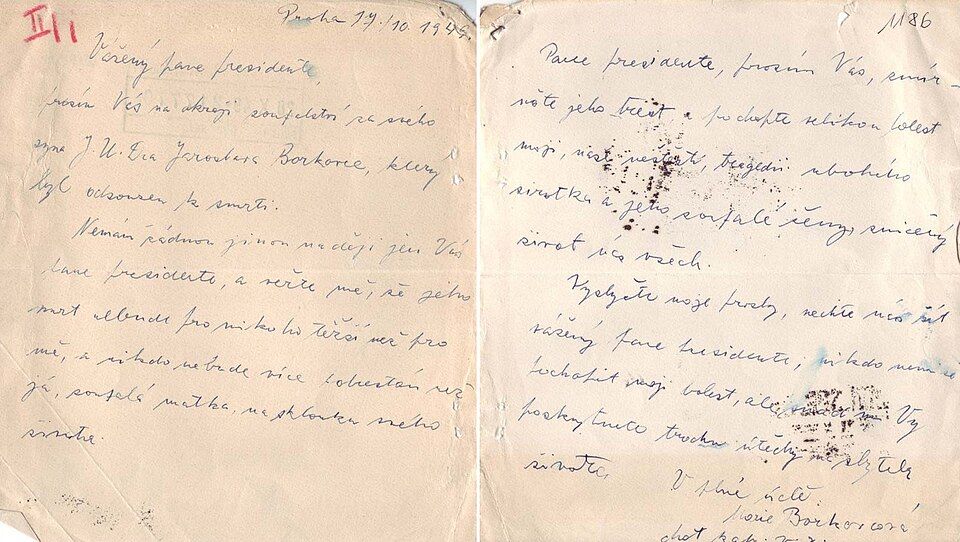 II/1
Praha 17./10. 1949
Vážený pane presidente,
prosím Vás na okraji zoufalství za svého
syna J.U.Dra Jaroslava Borkovce, který
byl odsouzen k smrti.
Nemám žádnou jinou naději jen Vás
pane presidente, a věřte mě, že jeho
smrt nebude pro nikoho těžší než pro
mě, a nikdo nebude více potrestán než
já, zoufalá matka, na sklonku svého
života.
1186
Pane presidente, prosím Vás, zmír-
něte jeho trest a pochopte velikou bolest
moji, naše neštěstí, tragedii ubohého
sirotka a jeho zoufalé ženy, zničený
život nás všech.
Vyslyšte moje prosby, nechte nás žít
vážený pane presidente, nikdo nemůže
pochopit moji bolest, ale snad Vy
poskytnete trochu útěchy na zbytek
života.
V plné úctě
Marie Borkovcová